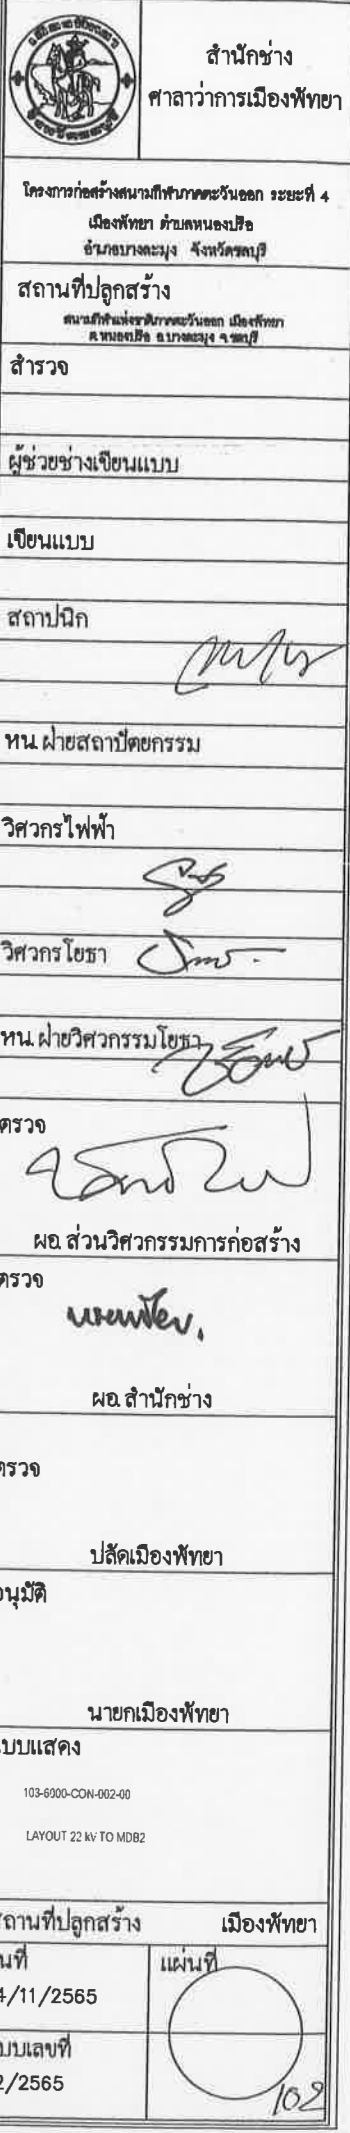 สำนักช่าง
ศาลาว่าการเมืองพัทยา
โครงการก่อสร้างสนามกีฬาภาคตะวันออก ระยะที่ 4
เมืองพัทยา ตำบลหนองปรือ
อำเภอบางละมุง จังหวัดชลบุรี
สถานที่ปลูกสร้าง
สนามกีฬาแห่งชาติภาคตะวันออก เมืองพัทยา
ต.หนองปรือ อ.บางละมุง จ.ชลบุรี
สำรวจ
ผู้ช่วยช่างเขียนแบบ
เขียนแบบ
สถาปนิก
หน.ฝ่ายสถาปัตยกรรม
วิศวกรไฟฟ้า
วิศวกรโยธา
หน.ฝ่ายวิศวกรรมโยธา
ตรวจ
ผอ.ส่วนวิศวกรรมการก่อสร้าง
ตรวจ
ผอ.สำนักช่าง
ตรวจ
ปลัดเมืองพัทยา
อนุมัติ
นายกเมืองพัทยา
แบบแสดง
103-6000-CON-002-00
LAYOUT 22 kV TO MDB2
สถานที่ปลูกสร้าง เมืองพัทยา
นที่
4/11/2565
แผ่นที่
บบเลขที่
2/2565
102